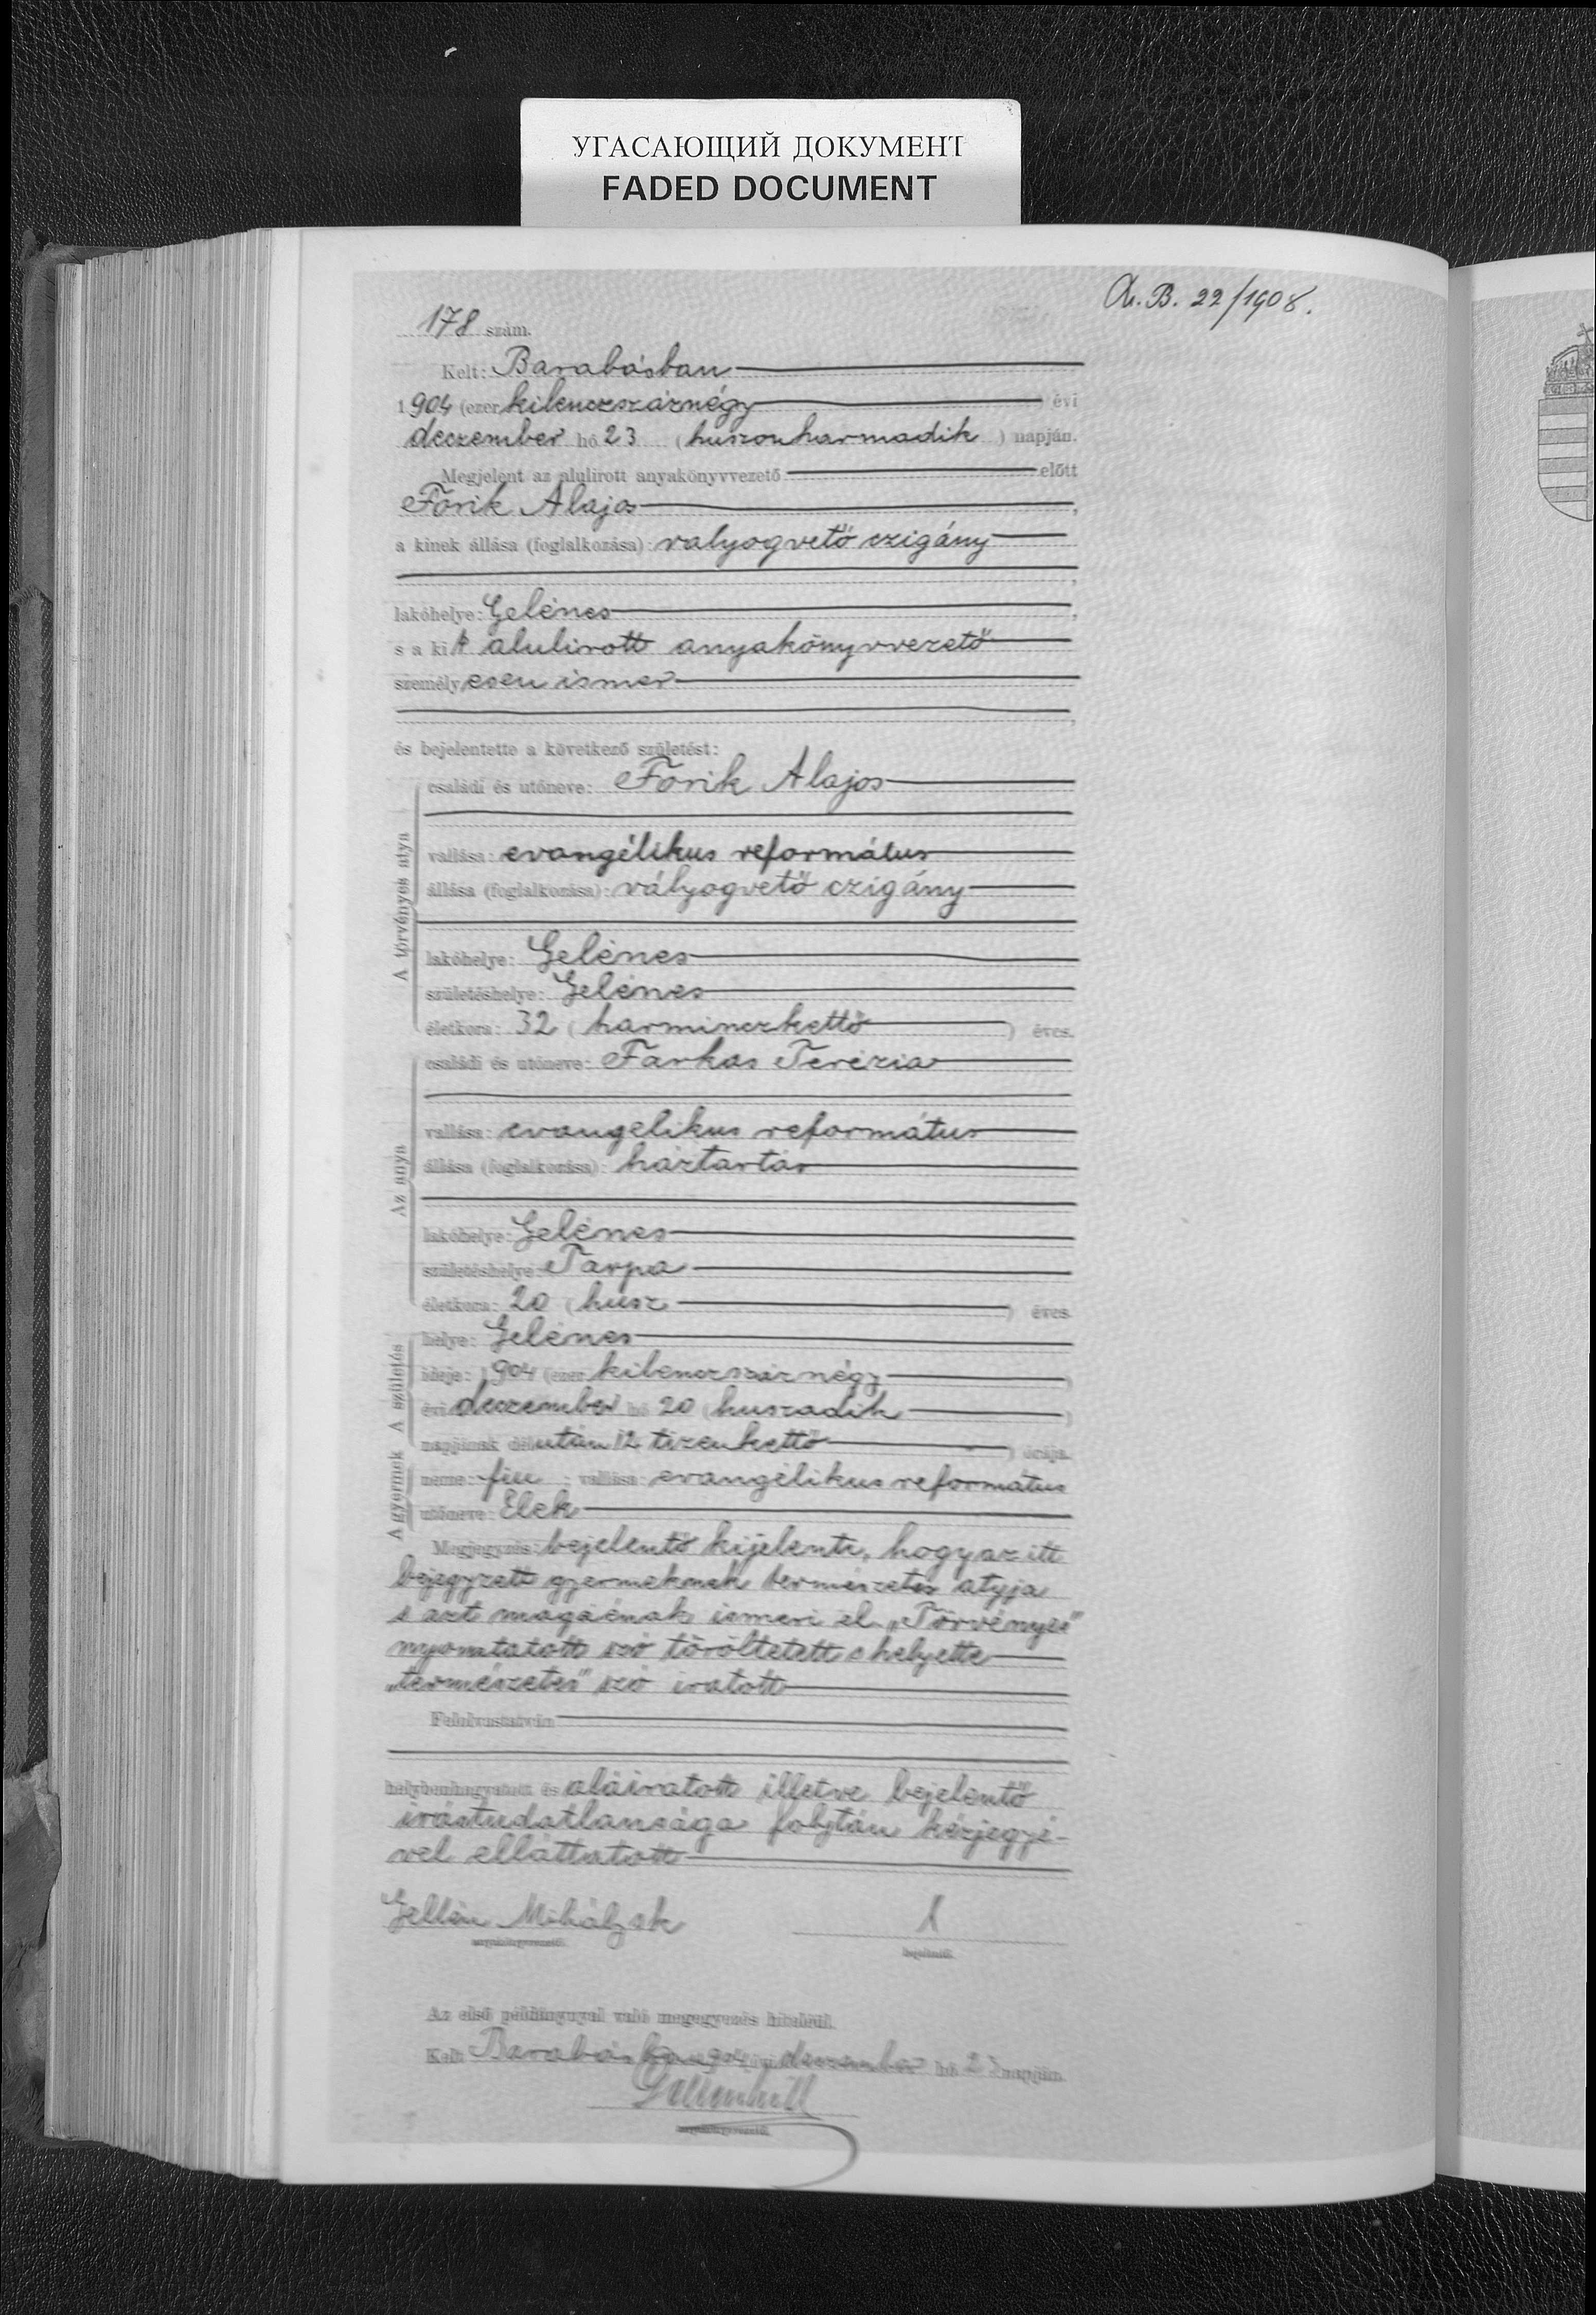 УГАСАЮЩИЙ ДОКУМЕНТ
FADED DOCUMENT
A. B. 22/1908.
178 szám.
Kelt: Barabásban
1904 (ezer kilenczszáznégy ) évi
deczember hó 23 (huszonharmadik ) napján.
Megjelent az alulirott anyakönyvvezető előtt
Forik Alajos ,
a kinek állása (foglalkozása): valyogvető czigány
,
lakóhelye: Gelénes ,
s a kit alulirott anyakönyvvezető
személyesen ismer
,
és bejelentette a következő születést:
A törvényes atya
családi és utóneve: Forik Alajos
vallása: evangélikus református
állása (foglalkozása): vályogvető czigány
lakóhelye: Gelénes
születéshelye: Gelénes
életkora: 32 (harminczkettő ) éves.
Az anya
családi és utóneve: Farkas Terézia
vallása: evangelikus református
állása (foglalkozása): háztartás
lakóhelye: Gelénes
születéshelye: Tarpa
életkora: 20 (húsz ) éves.
A születés
helye: Gelénes
ideje: 1904 (ezer kilenczszáznégy )
évi deczember hó 20 (huszadik )
napjának délután 12 tizenkettő ) órája.
A gyermek
neme: fiu ; vallása: evangélikus református
utóneve: Elek
Megjegyzés: bejelentő kijelenti, hogy az itt
bejegyzett gyermeknek természetes atyja
s azt magáénak ismeri el. „Törvényes"
nyomtatott szó töröltetett s helyette
„természetes" szó iratott
Felolvastatván
helybenhagyatott és aláiratott illetve bejelentő
irástudatlansága folytán kézjegyé-
vel elláttatott
Gellén Mihály sk
anyakönyvvezető. bejelentő.
Az első példánynyal való megegyezés hiteléül.
Kelt Barabásban 904 évi deczember hó 23 napján.
anyakönyvvezető.